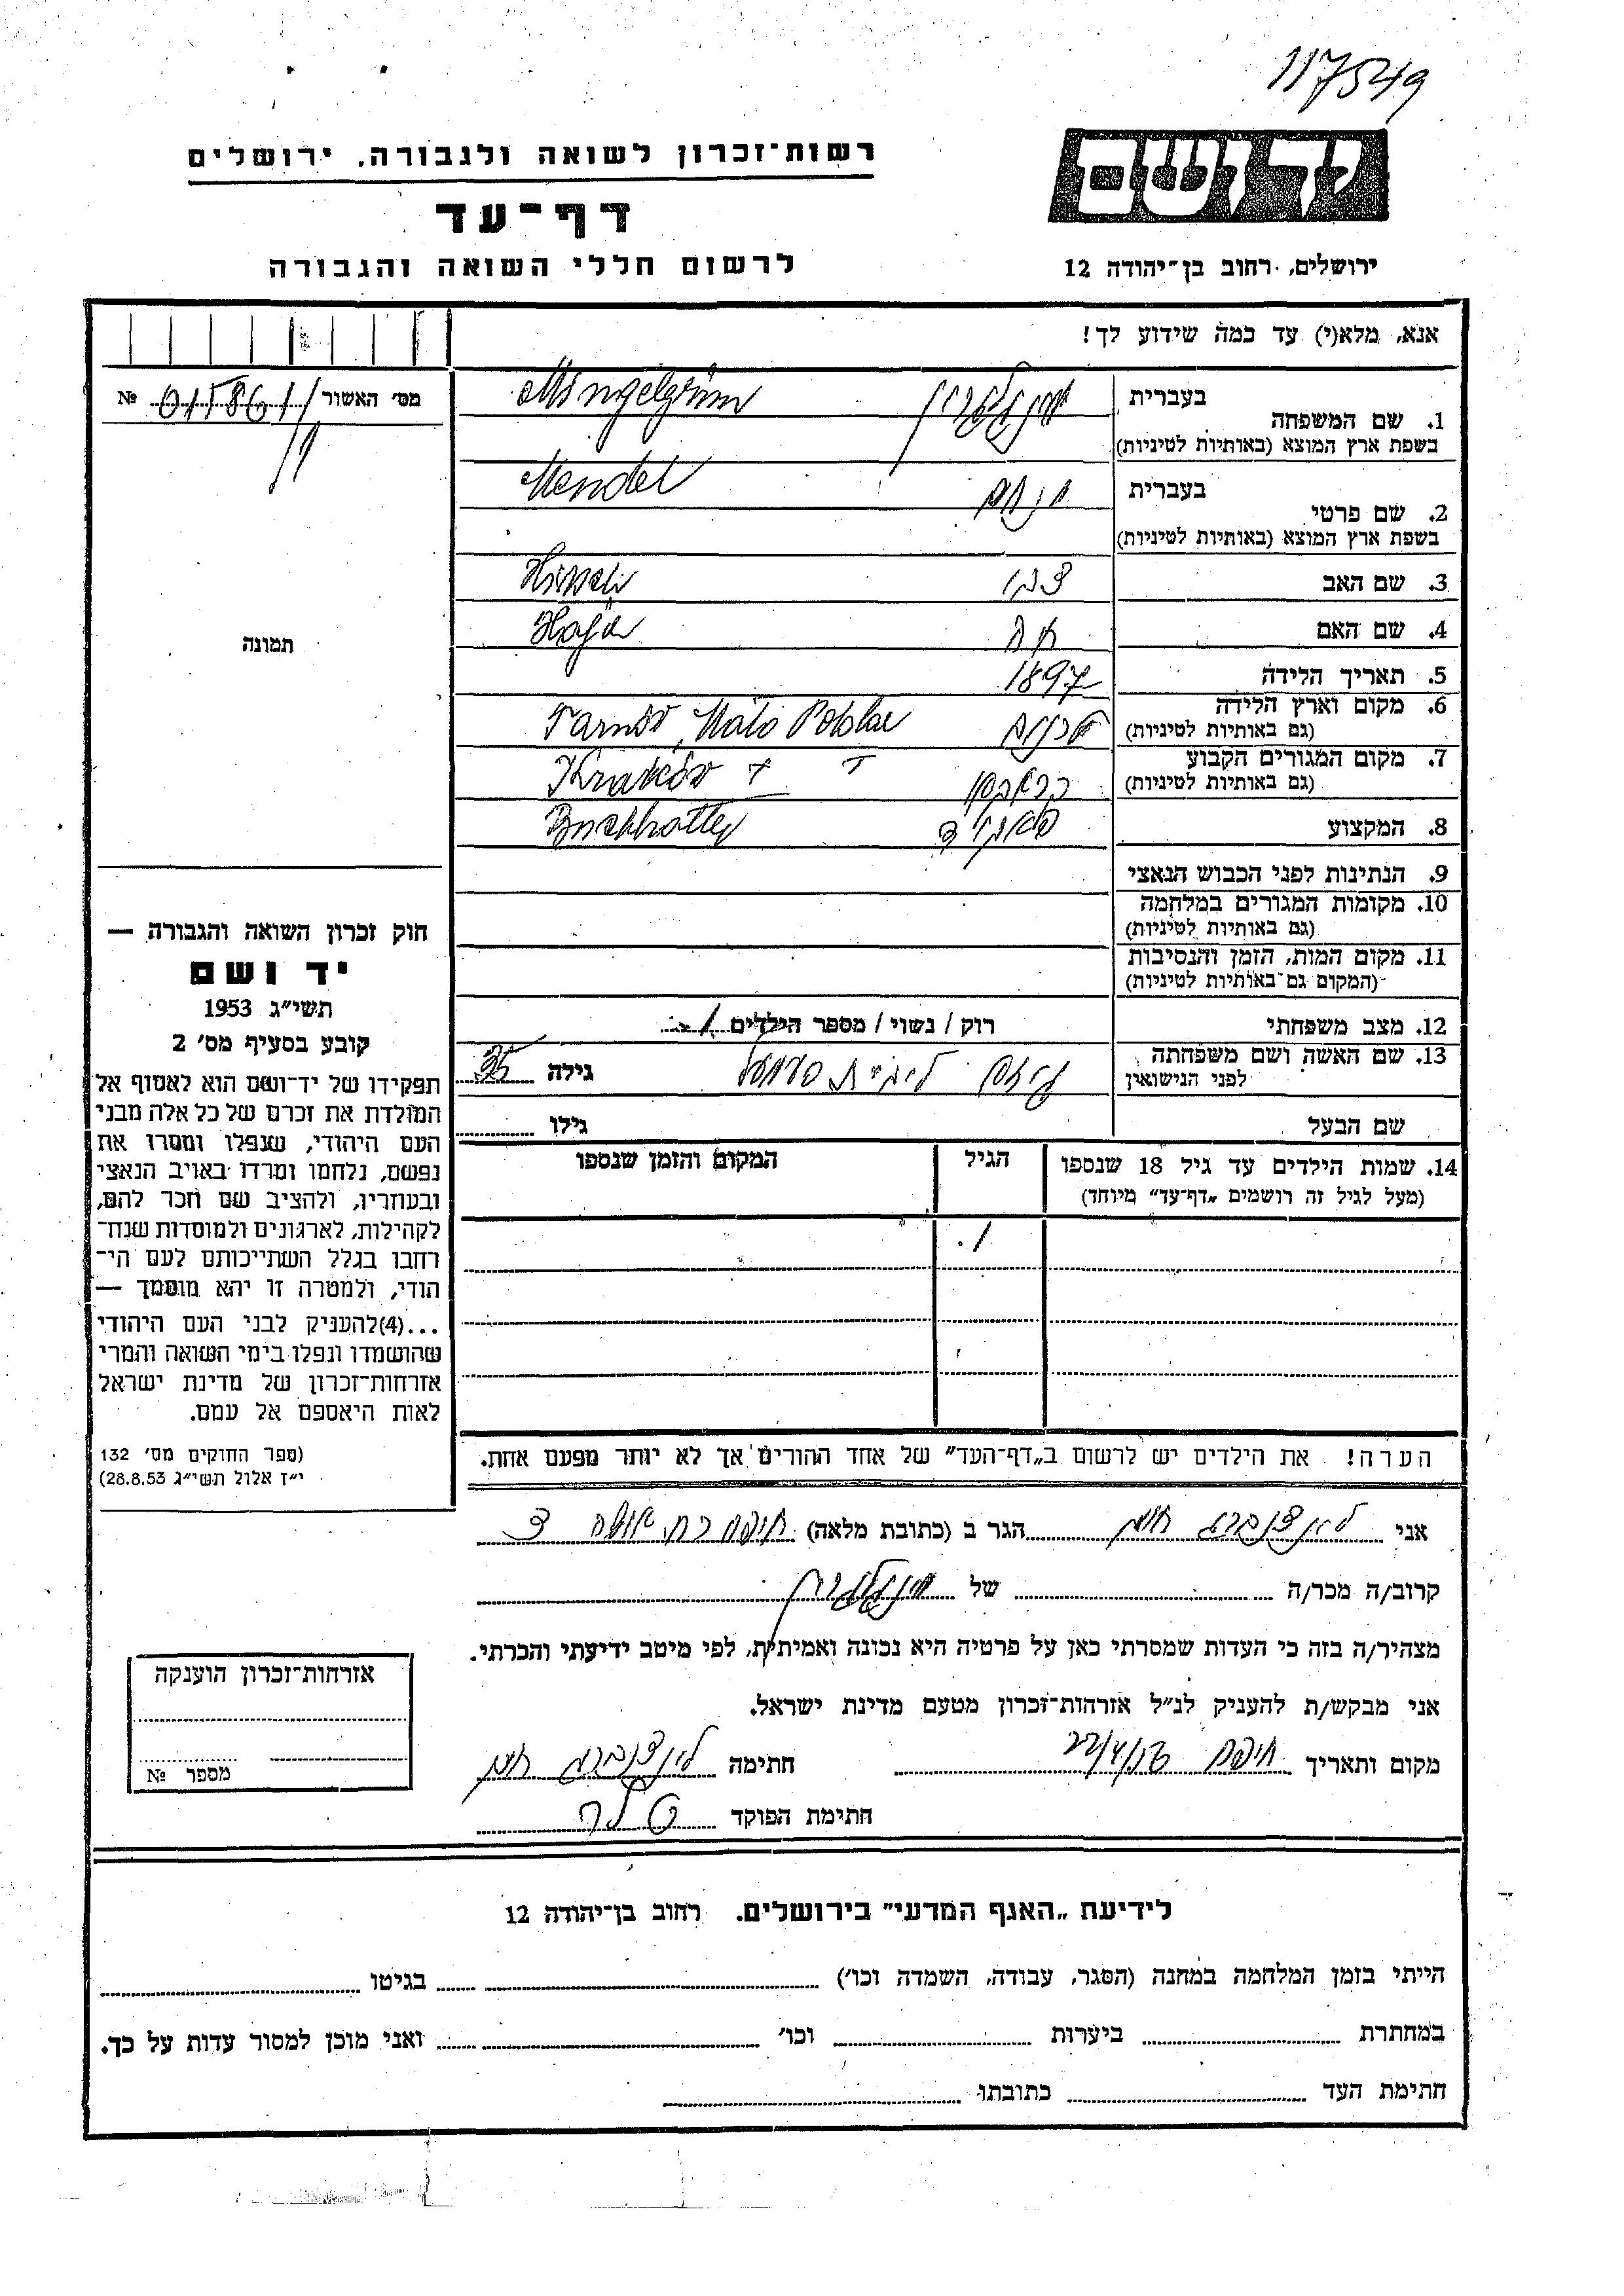 117549
יד ושם
רשות־זכרון לשואה ולגבורה, ירושלים
דף־עד
לרשום חללי השואה והגבורה
ירושלים, רחוב בן־יהודה 12
אנא, מלא(י) עד כמה שידוע לך!
מס׳ האשור № 015861
1. שם המשפחה בעברית
בשפת ארץ המוצא (באותיות לטיניות)
2. שם פרטי בעברית מנחם Mendel
בשפת ארץ המוצא (באותיות לטיניות)
3. שם האב צבי Hirsch
4. שם האם חיה Haja
5. תאריך הלידה 1897
6. מקום וארץ הלידה Tarnów, Mało Polska
(גם באותיות לטיניות)
7. מקום המגורים הקבוע Kraków
(גם באותיות לטיניות)
8. המקצוע Buchhalter
9. הנתינות לפני הכבוש הנאצי
10. מקומות המגורים במלחמה
(גם באותיות לטיניות)
11. מקום המות, הזמן והנסיבות
(המקום גם באותיות לטיניות)
12. מצב משפחתי רוק / נשוי / מספר הילדים
13. שם האשה ושם משפחתה
לפני הנישואין גילה 35
שם הבעל גילו
14. שמות הילדים עד גיל 18 שנספו
(מעל לגיל זה רושמים „דף־עד” מיוחד)
הגיל
המקום והזמן שנספו
תמונה
חוק זכרון השואה והגבורה —
יד ושם
תשי״ג 1953
קובע בסעיף מס׳ 2
תפקידו של יד־ושם הוא לאסוף אל
המולדת את זכרם של כל אלה מבני
העם היהודי, שנפלו ומסרו את
נפשם, נלחמו ומרדו באויב הנאצי
ובעוזריו, ולהציב שם וזכר להם,
לקהילות, לארגונים ולמוסדות שנח־
רחבו בגלל השתייכותם לעם הי־
הודי, ולמטרה זו יהא מוסמך —
...(4)להעניק לבני העם היהודי
שהושמדו ונפלו בימי השואה והמרי
אזרחות־זכרון של מדינת ישראל
לאות היאספם אל עמם.
(ספר החוקים מס׳ 132
י״ז אלול תשי״ג 28.8.53)
הערה! את הילדים יש לרשום ב„דף־העד” של אחד ההורים אך לא יותר מפעם אחת.
אני הגר ב (כתובת מלאה) חיפה
קרוב/ה מכר/ה של
מצהיר/ה בזה כי העדות שמסרתי כאן על פרטיה היא נכונה ואמיתית, לפי מיטב ידיעתי והכרתי.
אני מבקש/ת להעניק לנ״ל אזרחות־זכרון מטעם מדינת ישראל.
מקום ותאריך חיפה חתימה
חתימת הפוקד
אזרחות־זכרון הוענקה
מספר №
לידיעת „האגף המדעי” בירושלים. רחוב בן־יהודה 12
הייתי בזמן המלחמה במחנה (הסגר, עבודה, השמדה וכו׳) בגיטו
במחתרת ביערות וכו׳ ואני מוכן למסור עדות על כך.
חתימת העד כתובתו